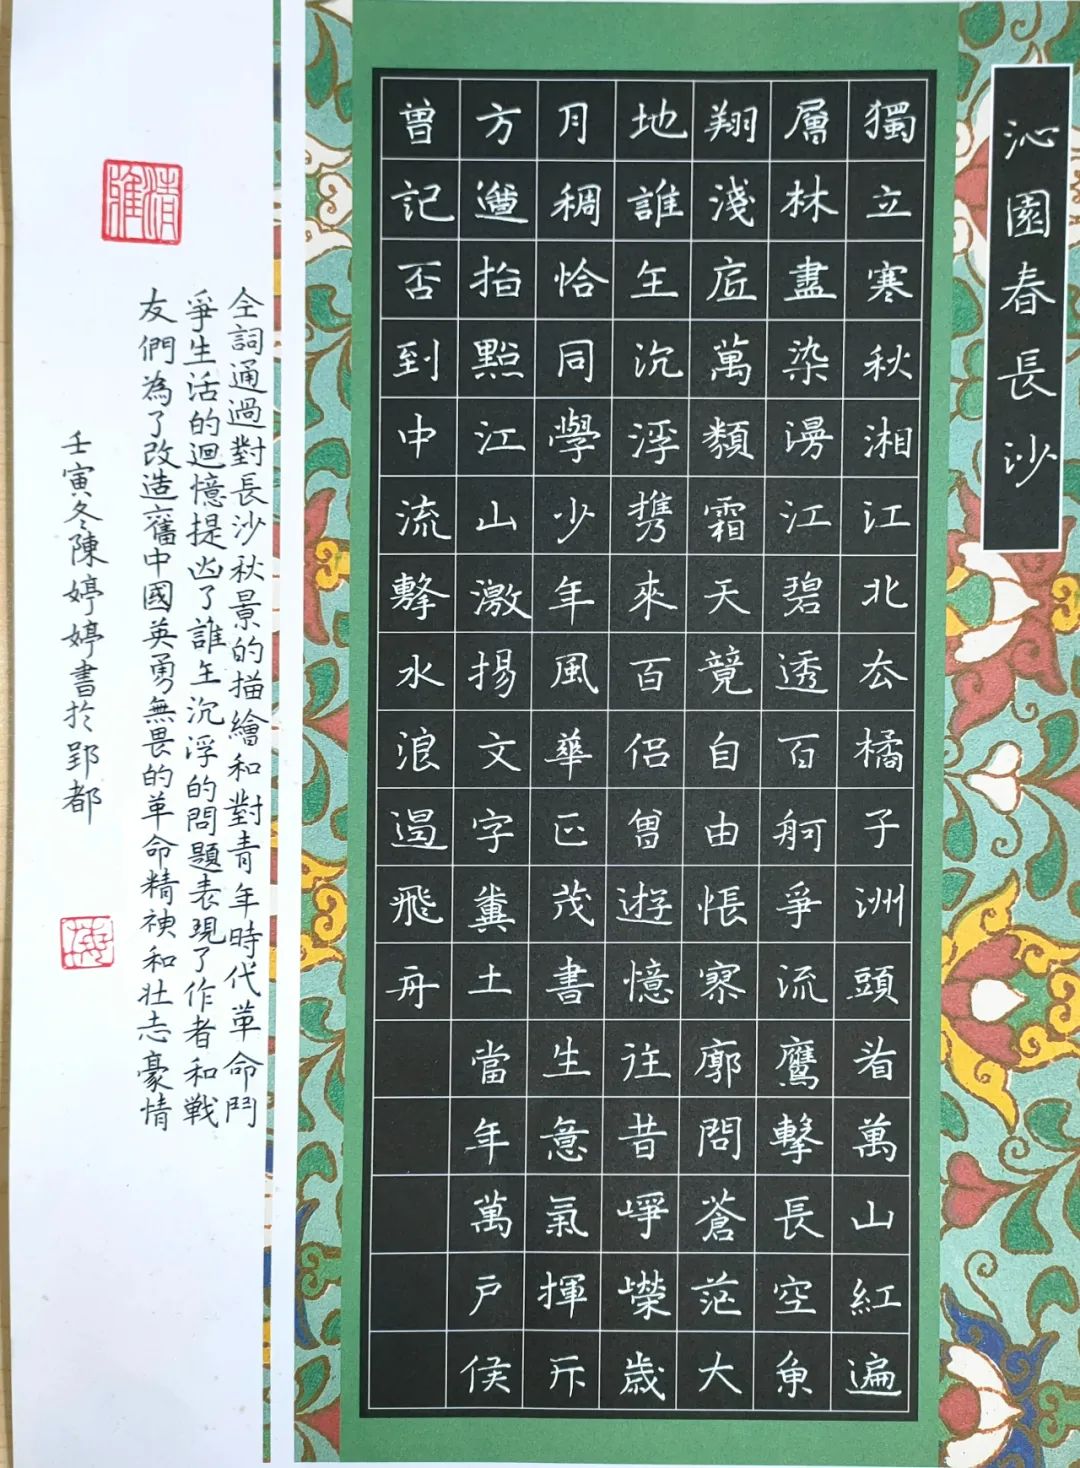 沁園春長沙
獨立寒秋湘江北厺橘子洲頭看萬山紅遍
層林盡染漫江碧透百舸爭流鷹擊長空魚
翔淺底萬類霜天競自由悵寥廓問蒼茫大
地誰主沉浮攜來百侶曾遊憶往昔崢嶸歲
月稠恰同學少年風華正茂書生意氣揮斥
方遒指點江山激揚文字糞土當年萬戶侯
曾記否到中流擊水浪遏飛舟
全詞通過對長沙秋景的描繪和對青年時代革命鬥
爭生活的迴憶提出了誰主沉浮的問題表現了作者和戰
友們為了改造舊中國英勇無畏的革命精神和壯志豪情
壬寅冬陳婷婷書於郢都
清雅